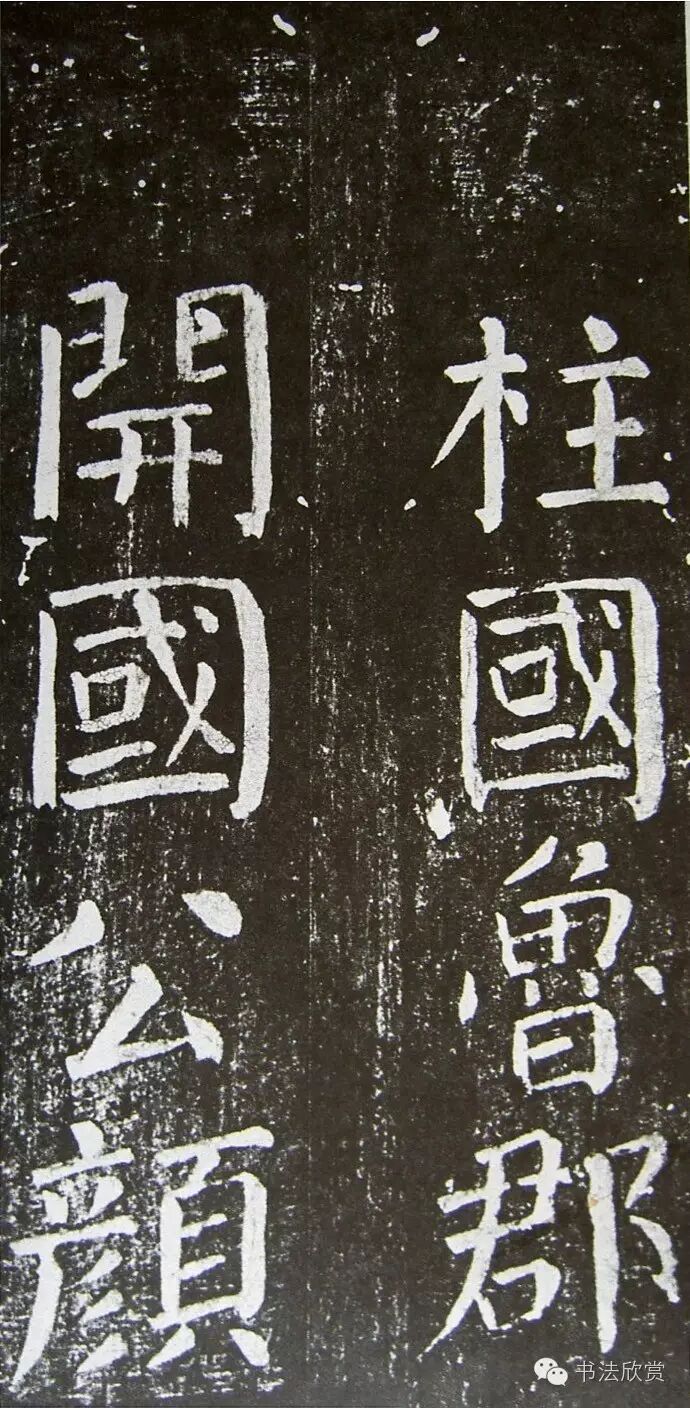 柱國魯郡
開國公顏
书法欣赏